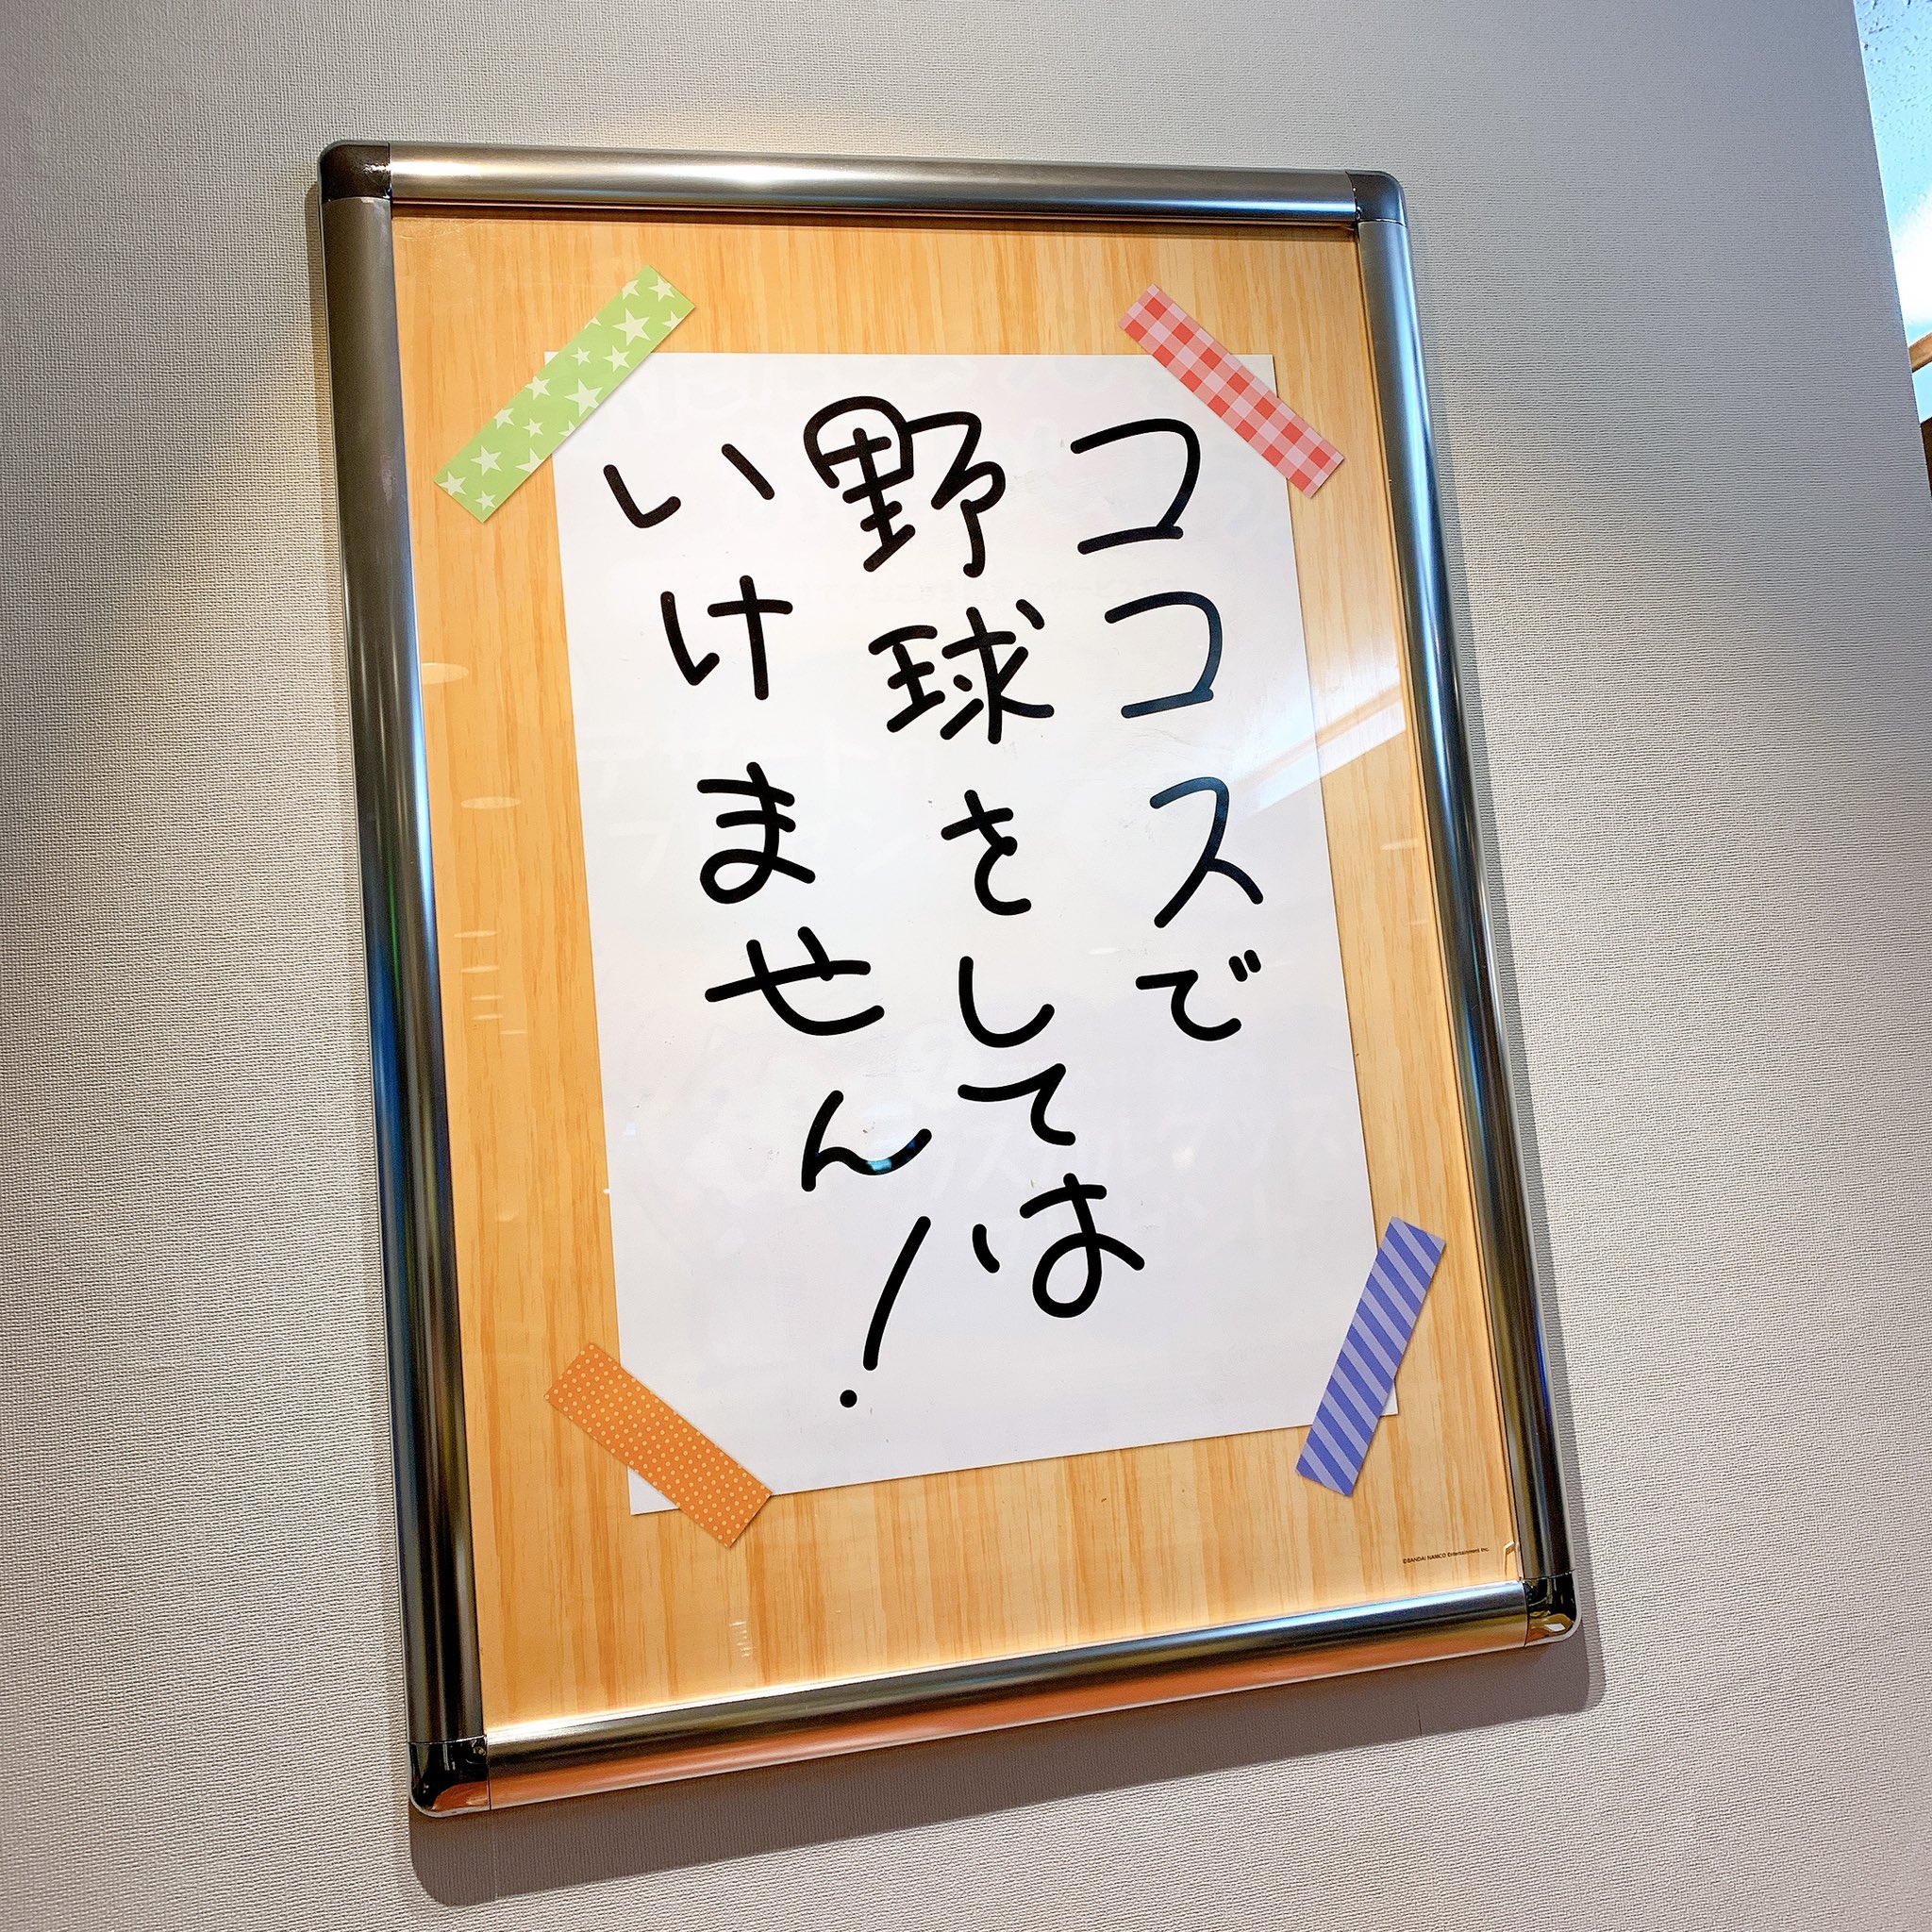 ココスで
野球をしては
いけません!
©BANDAI NAMCO Entertainment Inc.